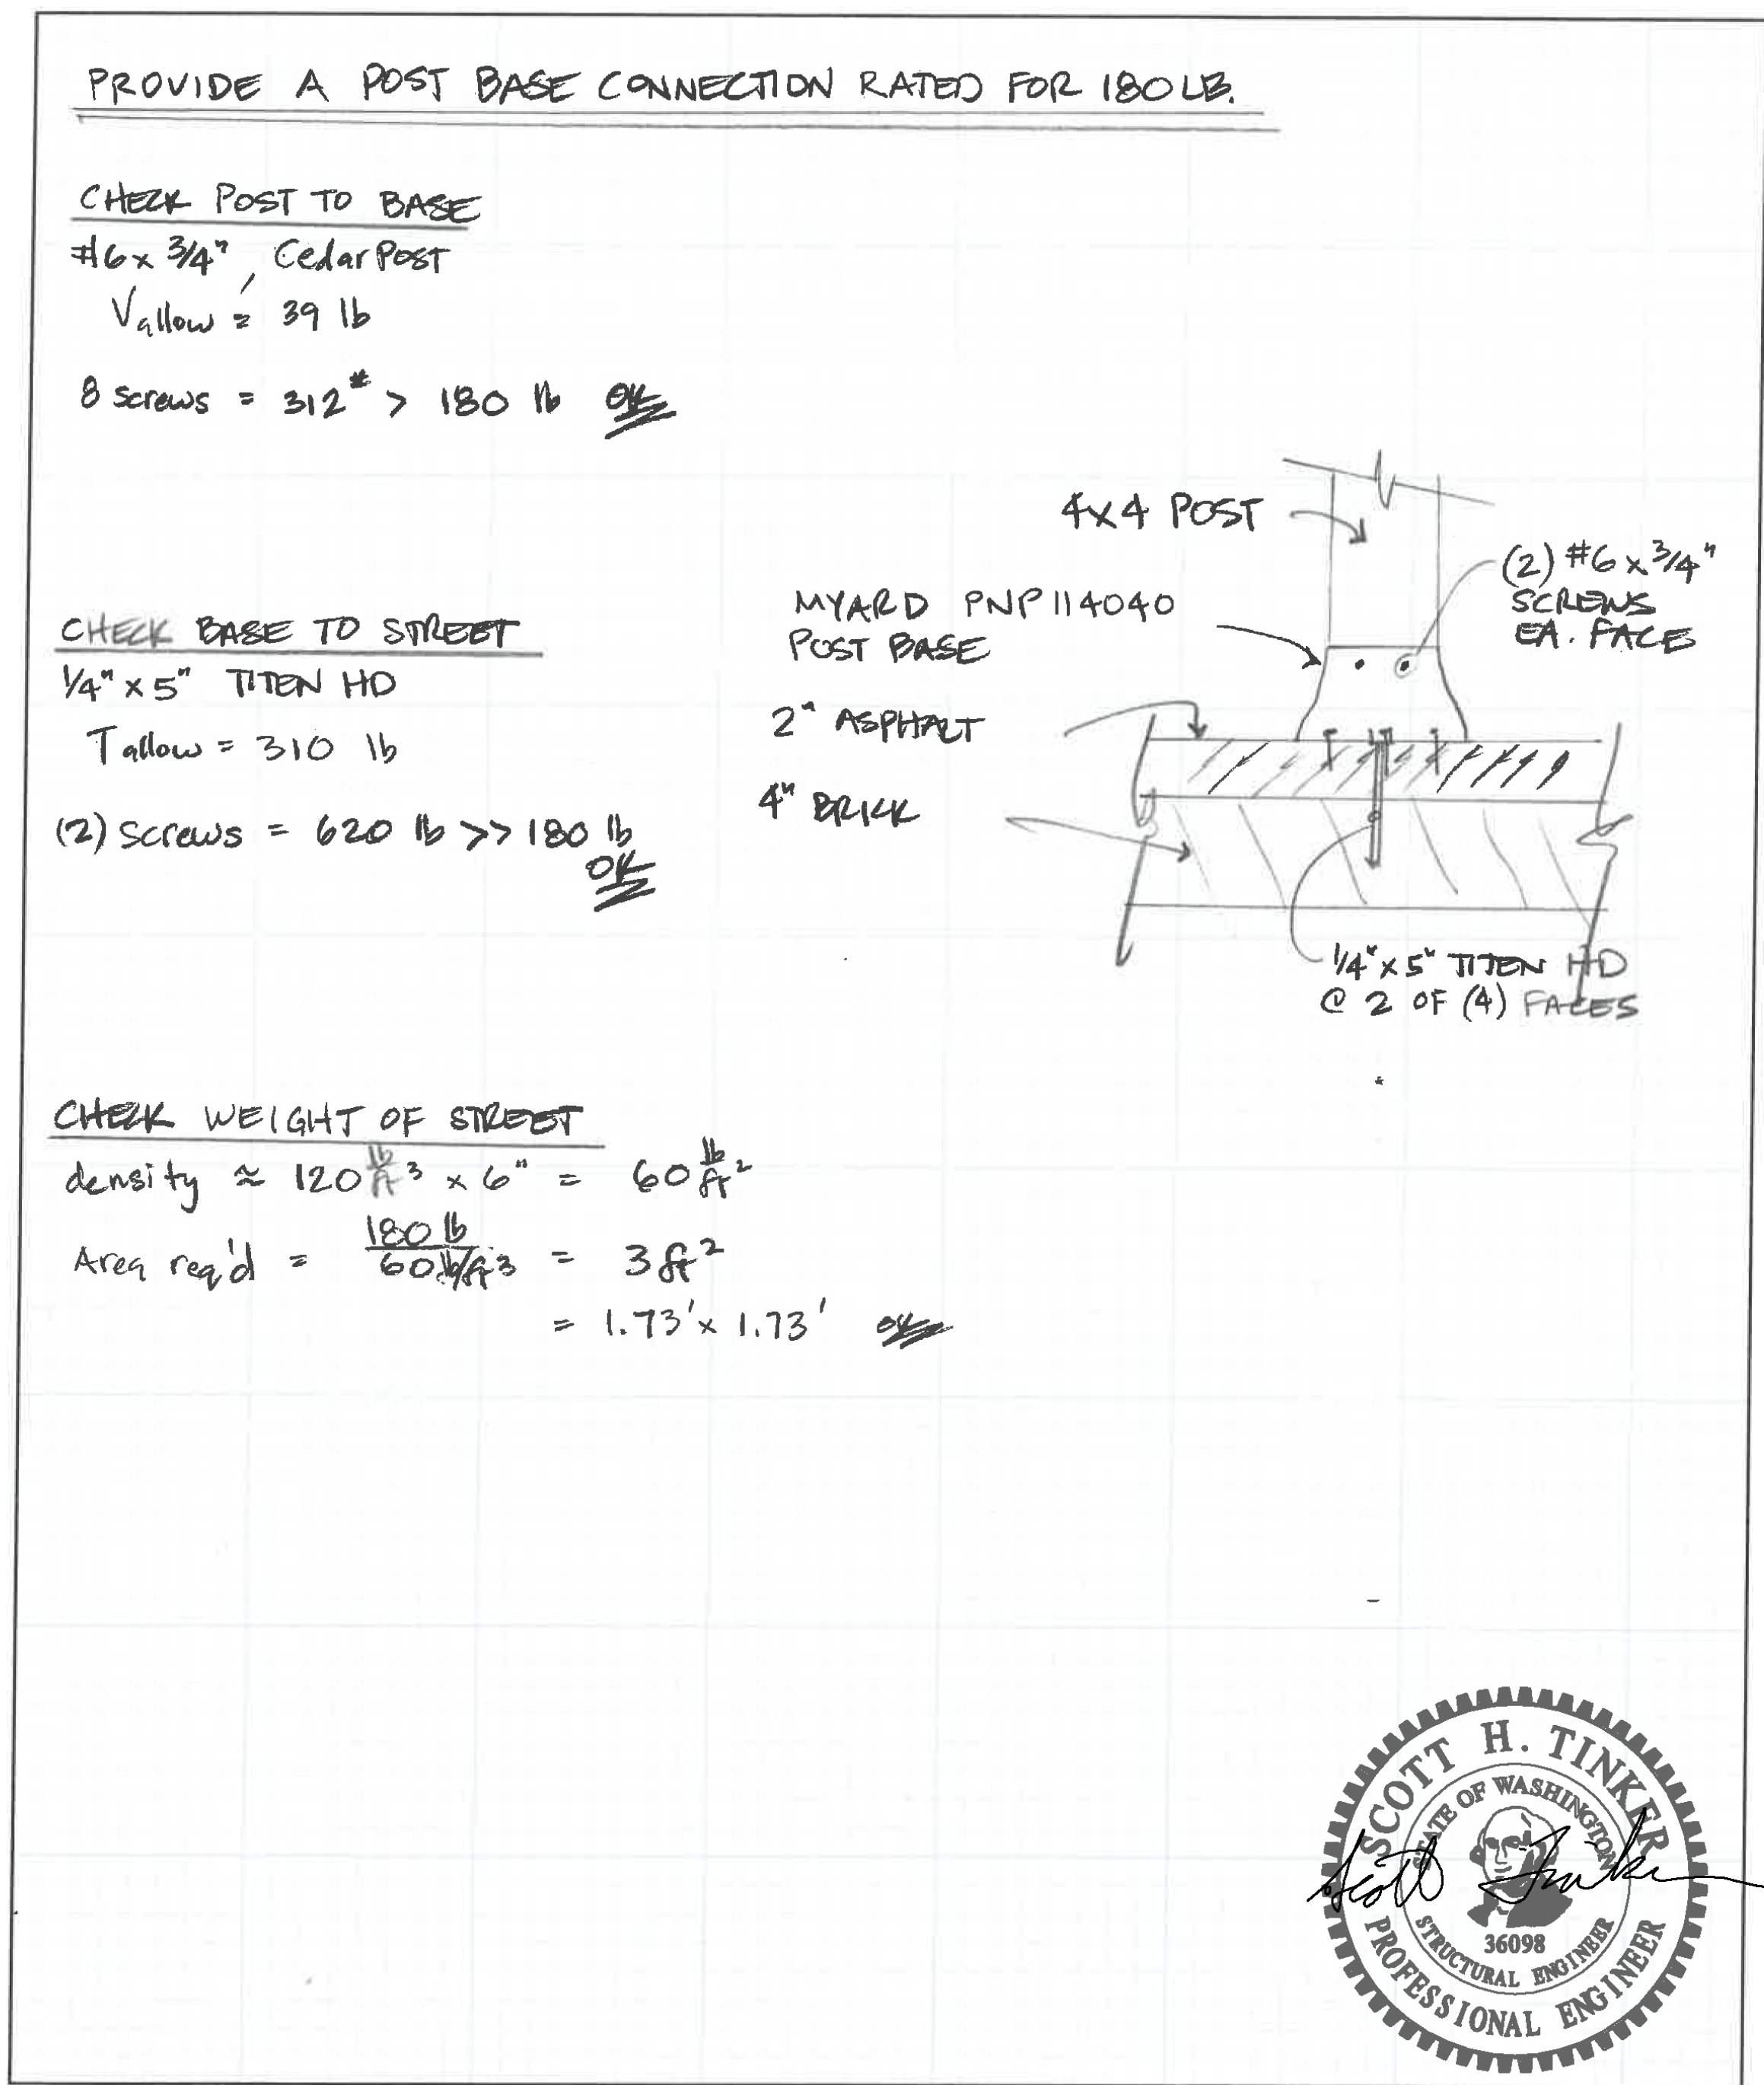 PROVIDE A POST BASE CONNECTION RATED FOR 180 LB.
CHECK POST TO BASE
#6 x 3/4", Cedar Post
Vallow = 39 lb
8 screws = 312# > 180 lb OK
CHECK BASE TO STREET
1/4" x 5" TITEN HD
Tallow = 310 lb
(2) screws = 620 lb >> 180 lb
OK
4x4 POST
(2) #6 x 3/4"
SCREWS
EA. FACE
MYARD PNP114040
POST BASE
2" ASPHALT
4" BRICK
1/4" x 5" TITEN HD
@ 2 OF (4) FACES
CHECK WEIGHT OF STREET
density ≈ 120 lb/ft³ x 6" = 60 lb/ft²
Area req'd = 180 lb / 60 lb/ft3 = 3 ft²
= 1.73' x 1.73' OK
SCOTT H. TINKER
STATE OF WASHINGTON
Scott Tinker
36098
STRUCTURAL ENGINEER
PROFESSIONAL ENGINEER